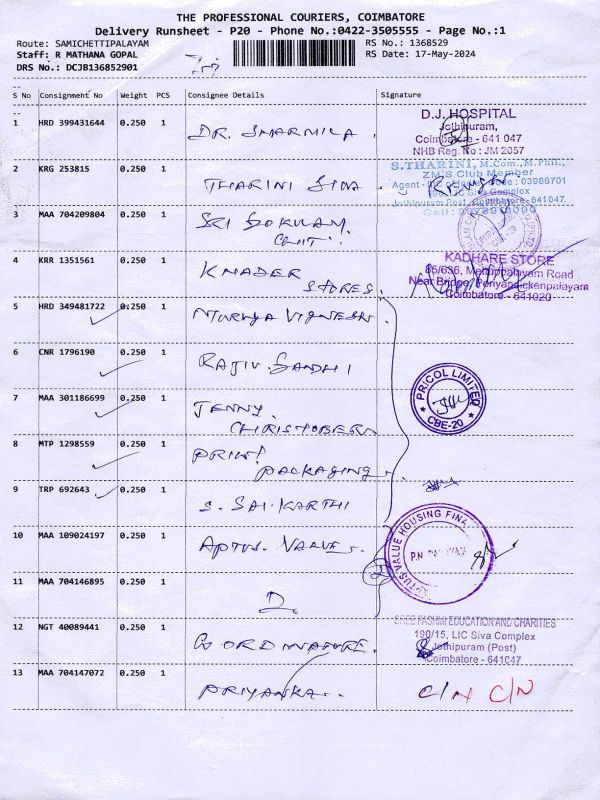 THE PROFESSIONAL COURIERS, COIMBATORE
Delivery Runsheet - P20 - Phone No.:0422-3505555 - Page No.:1
Route: SAMICHETTIPALAYAM
RS No.: 1368529
Staff: R MATHANA GOPAL
RS Date: 17-May-2024
DRS No.: DCJB136852901
S No Consignment No Weight PCS Consignee Details Signature
1 HRD 399431644 0.250 1 DR. SHARMILA.
D.J. HOSPITAL
Jothipuram,
Coimbatore - 641 047
NHB Reg. No : JM 2057
2 KRG 253815 0.250 1 THARINI SIVA
S.THARINI, M.Com., M.Phil.,
ZM'S Club Member
Jothipuram Post, Coimbatore-641047.
3 MAA 704209804 0.250 1 SRI GOKULAM
CHIT
4 KRR 1351561 0.250 1 KHADER
STORES.
KADHARE STORE
85/636, Mettuppalayam Road
Near Bridge, Periyanaickenpalayam
Coimbatore - 641020
5 HRD 349481722 0.250 1
6 CNR 1796190 0.250 1 RAJIV. GANDHI
7 MAA 301186699 0.250 1 JENNY.
CHRISTOBER
PRICOL LIMITED
CBE-20
8 MTP 1298559 0.250 1 PRINT
PACKAGING.
9 TRP 692643 0.250 1 S. SAI. KARTHI
10 MAA 109024197 0.250 1 APTUS. VALUE.
APTUS VALUE HOUSING FINA
2
11 MAA 704146895 0.250 1 2
12 NGT 40089441 0.250 1
SREE PASHMI EDUCATION AND CHARITIES
190/15, LIC Siva Complex
Jothipuram (Post)
Coimbatore - 641047
13 MAA 704147072 0.250 1 PRIYANKA..
C/N C/N